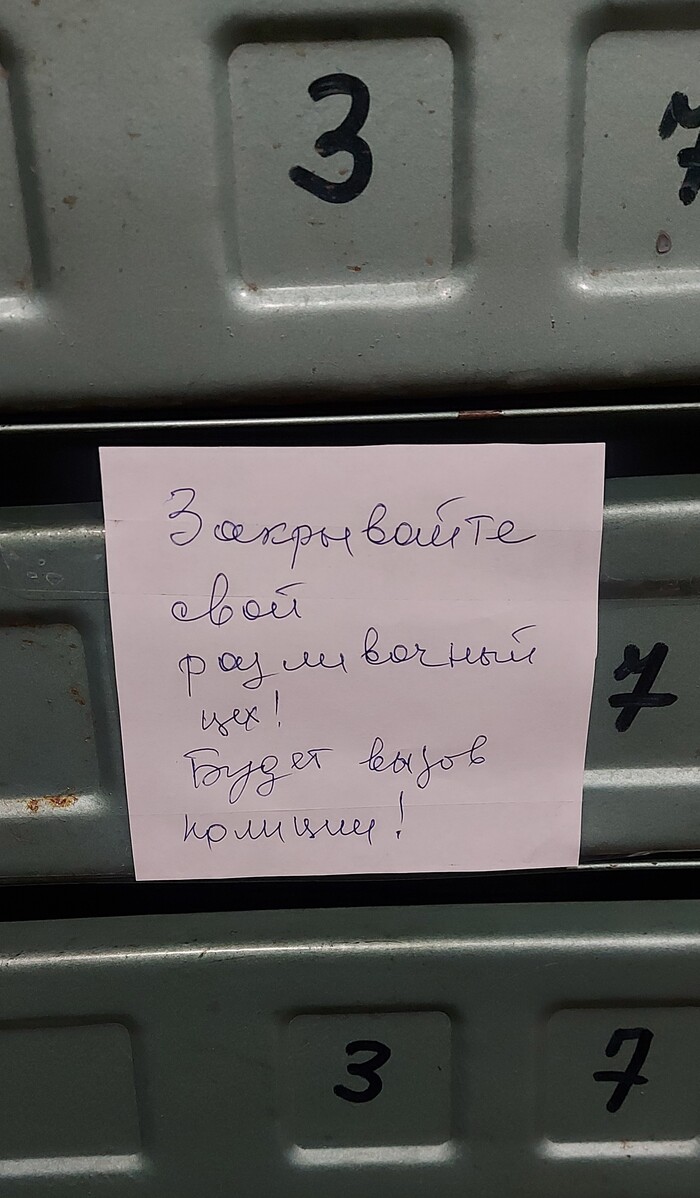 3 7
Закрывайте
свой
разливочный
цех!
Будет вызов
полиции!
7
3 7